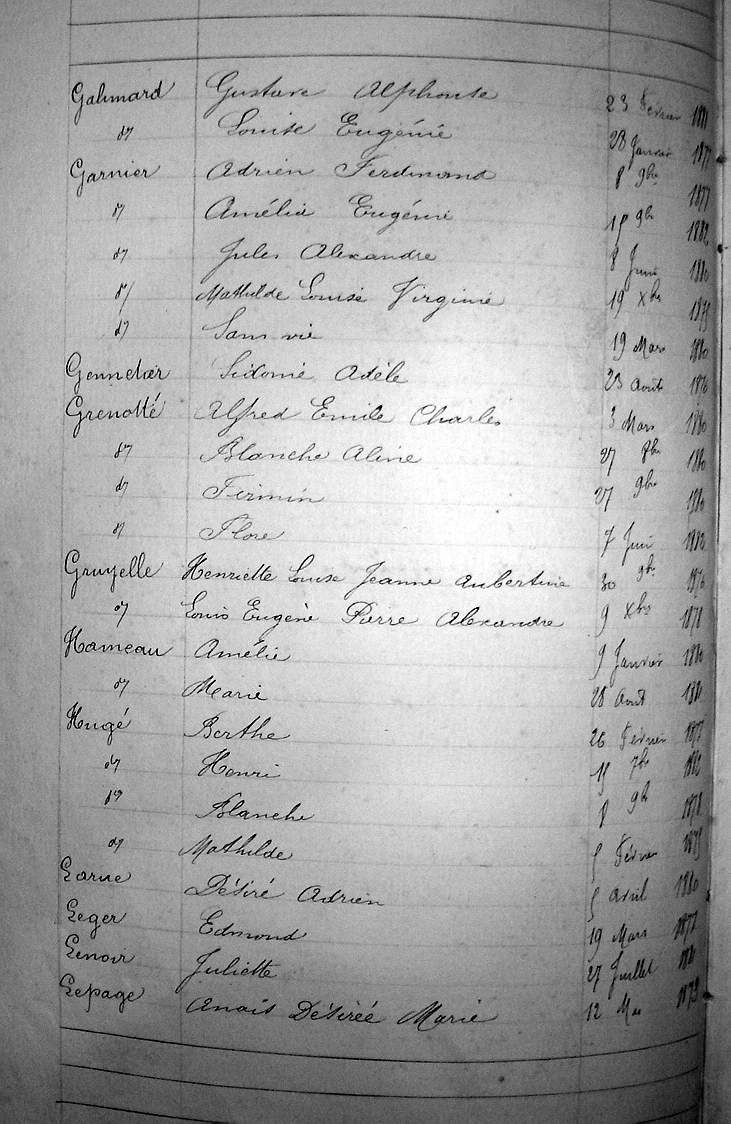 Galmard Gustave Alphonse 23 Février
dº Louise Eugénie 28 Janvier 1877
Garnier Adrien Ferdinand 8 9bre 1877
dº Amélie Eugénie 15 9bre 1882
dº Jules Alexandre 8 Juin 1880
dº Mathilde Louise Virginie 19 Xbre 1875
dº Sans vie 19 Mars 1880
Sidonie Adèle 23 Août 1876
Grenotté Alfred Emile Charles 3 Mars 1880
dº Blanche Aline 27 1880
dº Firmin 27 9bre 1880
dº Flore 7 Juin
Gruyelle Henriette Louise Jeanne Aubertine 30 9bre 1876
dº Louis Eugène Pierre Alexandre 9 Xbre 1878
Hameau Amélie 9 Janvier 1880
dº Marie 28 Août
Hugé Berthe 26 Février 1877
dº Henri 15 7bre 1882
dº Blanche 8 9bre 1878
dº Mathilde 5 Février 1875
Larue Désiré Adrien 5 Avril 1880
Leger Edmond 19 Mars 1877
Lenoir Juliette 27 Juillet
Lepage Anaïs Désirée Marie 12 1879